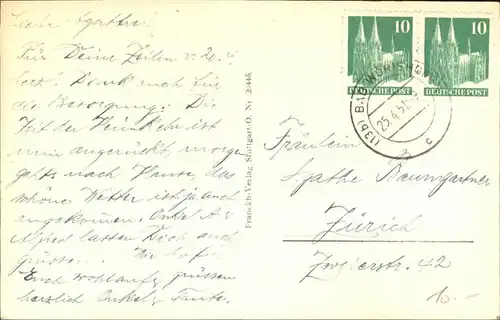 Liebe Agathe!
Für Deine Zeilen v. 20.4.
herzl. Dank auch für
die Besorgung. Die
Zeit der Heimkehr ist
nun angerückt, morgen
gehts nach Hause, das
schöne Wetter ist ja auch
angekommen. Onkel A &
lassen Dich auch
grüssen. Wir hoffen
Euch wohlauf & grüssen
herzlich Onkel & Tante.
Franckh-Verlag Stuttgart-O. Nr.
10 10
DEUTSCHE POST DEUTSCHE POST
(13b) BAD WÖRISHOFEN
25.4.51
c
Fräulein
Agathe Baumgartner
Zürich
42
10.-